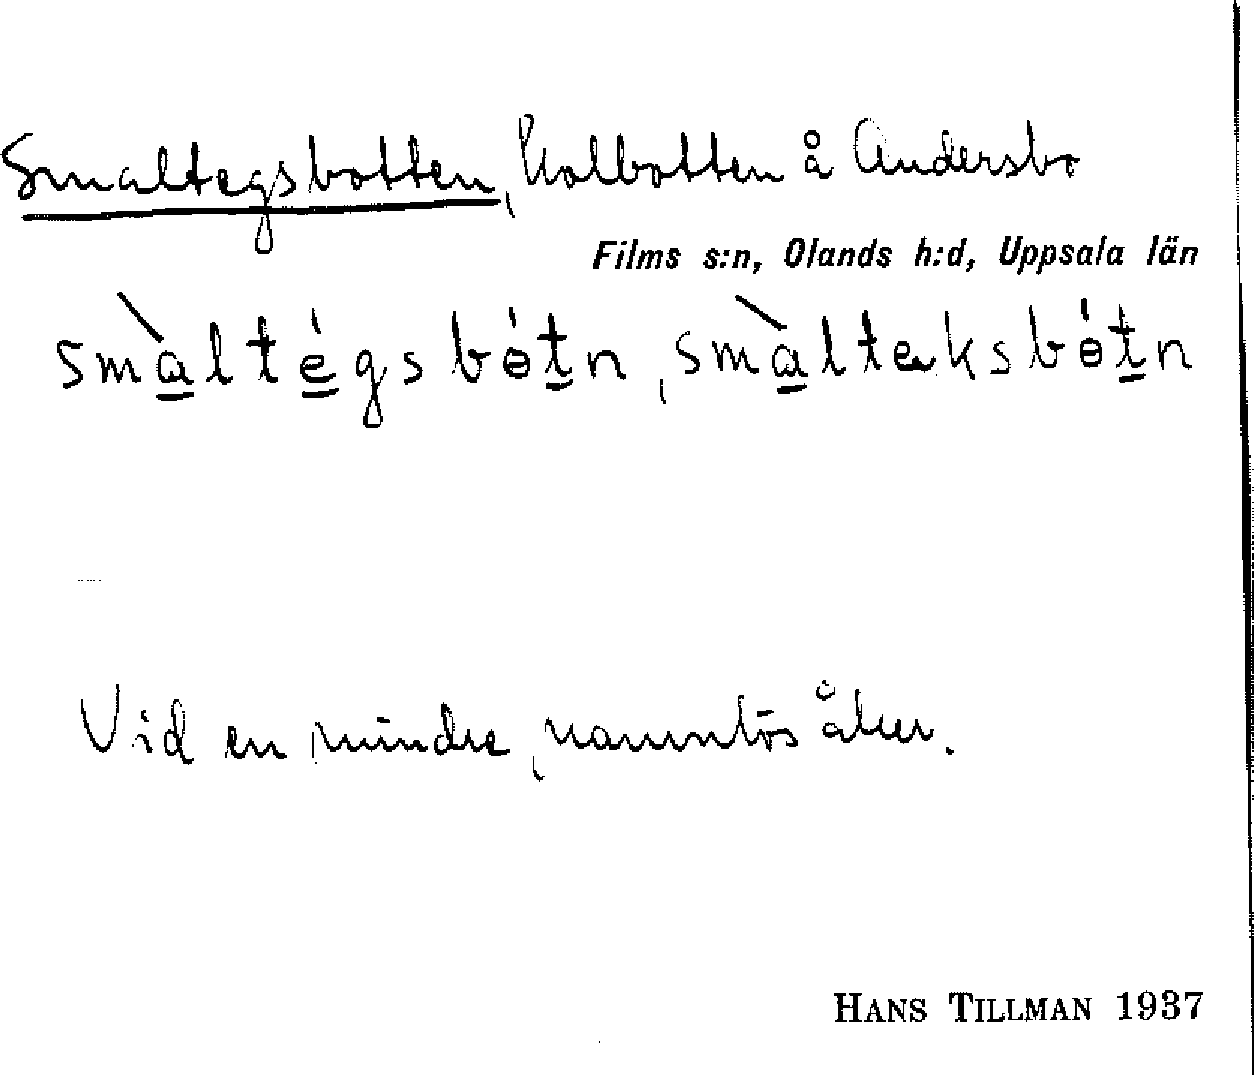 Smaltegsbotten, Kolbotten å Andersbo
Films s:n, Olands h:d, Uppsala län
smàltégsbòtn, smàlteksbòtn
Vid en mindre, namnlös åker.
HANS TILLMAN 1937